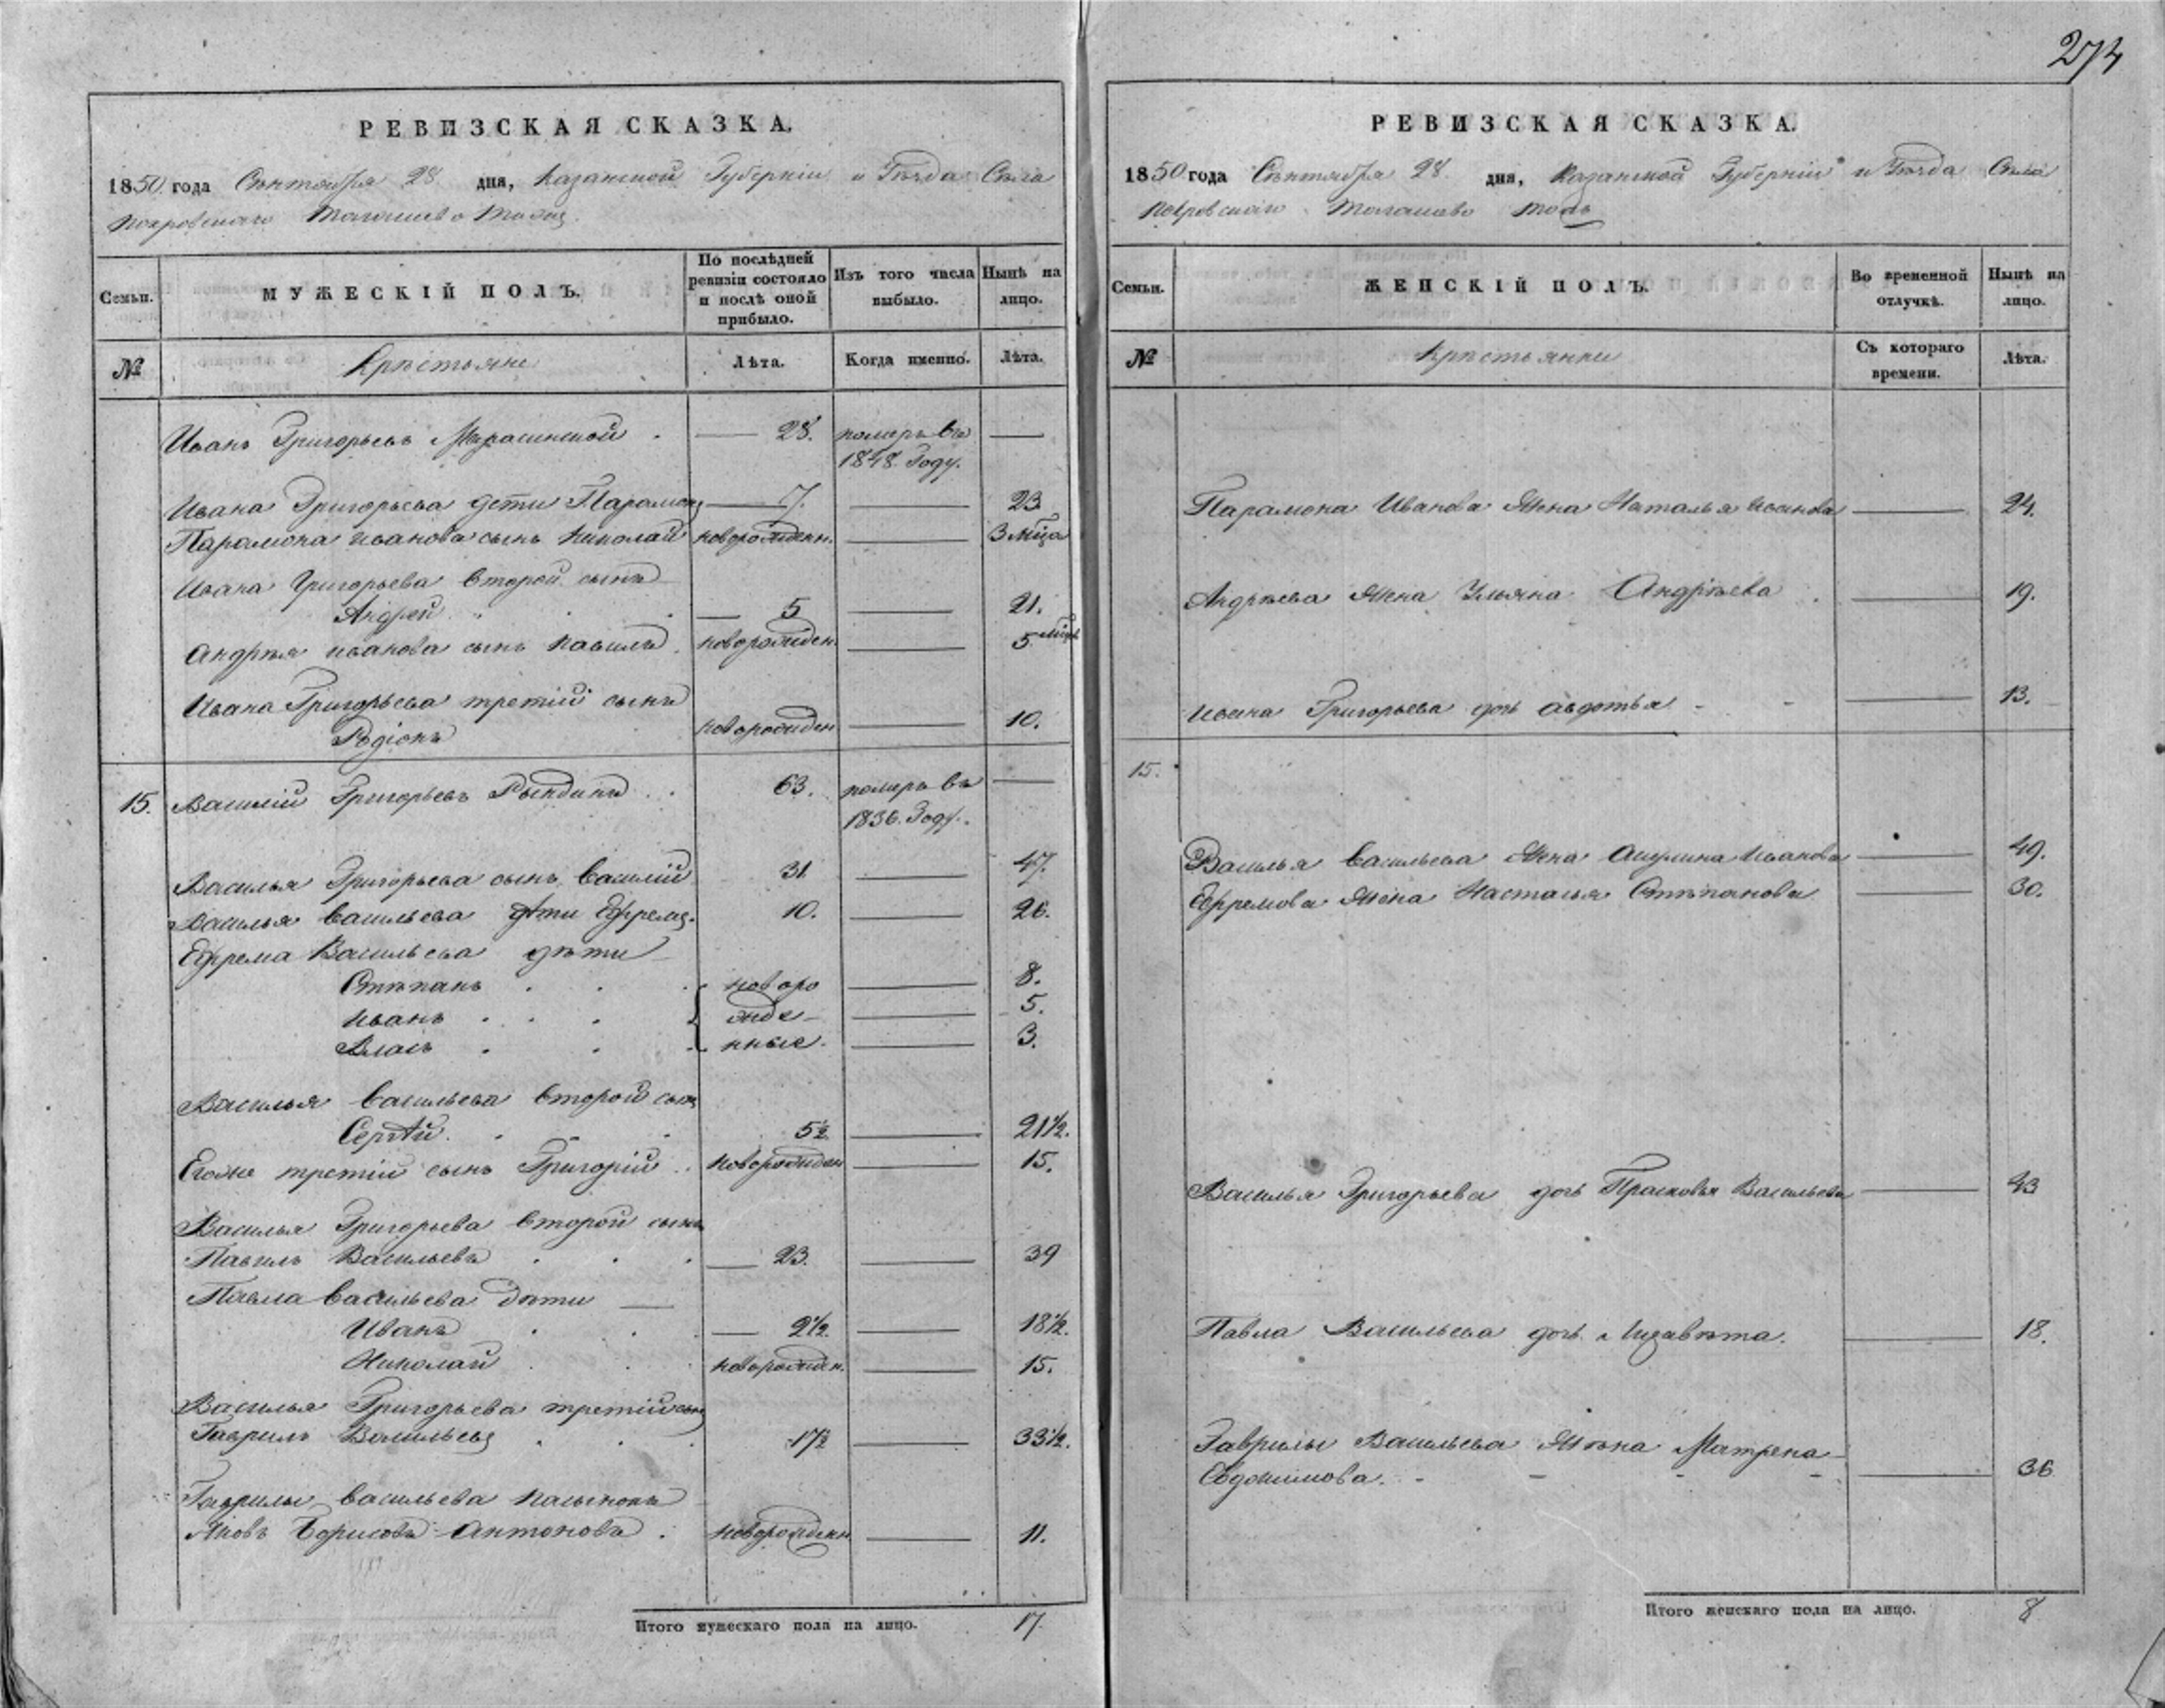 274
РЕВИЗСКАЯ СКАЗКА.
1850 года Сентября 28 дня, Казанской Губерніи и Уѣзда Села
Покровскаго
Семьи.
МУЖЕСКІЙ ПОЛЪ.
По послѣдней ревизіи состояло и послѣ оной прибыло.
Изъ того числа выбыло.
Нынѣ на лицо.
№
Крестьяне
Лѣта.
Когда именно.
Лѣта.
Иванъ Григорьевъ — 28. померъ въ —
1848. Году.
Ивана Григорьева дети Парамонъ — 7. — 23
Парамона Иванова сынъ Николай новорожденн. — 3 мѣца
Ивана Григорьева второй сынъ
Андрей — 5 — 21.
Андрея Иванова сынъ Павилъ новорожден. — 5 мѣцъ
Ивана Григорьева третій сынъ
Родіонъ новорожден — 10.
15. Василій Григорьевъ Рындинъ 63. померъ въ —
1836. Году.
Василья Григорьева сынъ Василій 31 — 47.
Василья Васильева дѣти Ефремъ. 10. — 26.
Ефрема Васильева дѣти
Степанъ новоро — 8.
Иванъ жде — 5.
Власъ нные. — 3.
Василья Васильева второй сынъ
Сергѣй. 5½ — 21½.
Егоже третій сынъ Григорій новорожден — 15.
Василья Григорьева второй сынъ
Павилъ Васильевъ — 23. — 39
Павла Васильева дѣти —
Иванъ — 2½. — 18½.
Николай новорожден. — 15.
Василья Григорьева третій сынъ
Гаврилъ Васильевъ 17½ — 33½.
Гаврилы Васильева пасынокъ
Яковъ Борисовъ Антоновъ новорожденн — 11.
Итого мужескаго пола на лицо. 17.
РЕВИЗСКАЯ СКАЗКА.
1850 года Сентября 28. дня, Казанской Губерніи и Уѣзда Села
Покровскаго
Семьи.
ЖЕНСКІЙ ПОЛЪ.
Во временной отлучкѣ.
Нынѣ на лицо.
№
Крестьянки
Съ котораго времени.
Лѣта.
Парамона Иванова Жена Наталья Иванова — 24.
Андрѣева Жена Ульяна Андрѣева — 19.
Ивана Григорьева дочь Авдотья — 13.
15.
Василья Васильева Жена Акулина Иванова — 49.
Ефремова Жена Настасья Степанова — 30.
Василья Григорьева дочь Прасковья Васильева — 43
Павла Васильева дочь Лизавѣта. — 18.
Гаврилы Васильева Жена Матрена
Евдокимова. — 36
Итого женскаго пола на лицо. 8